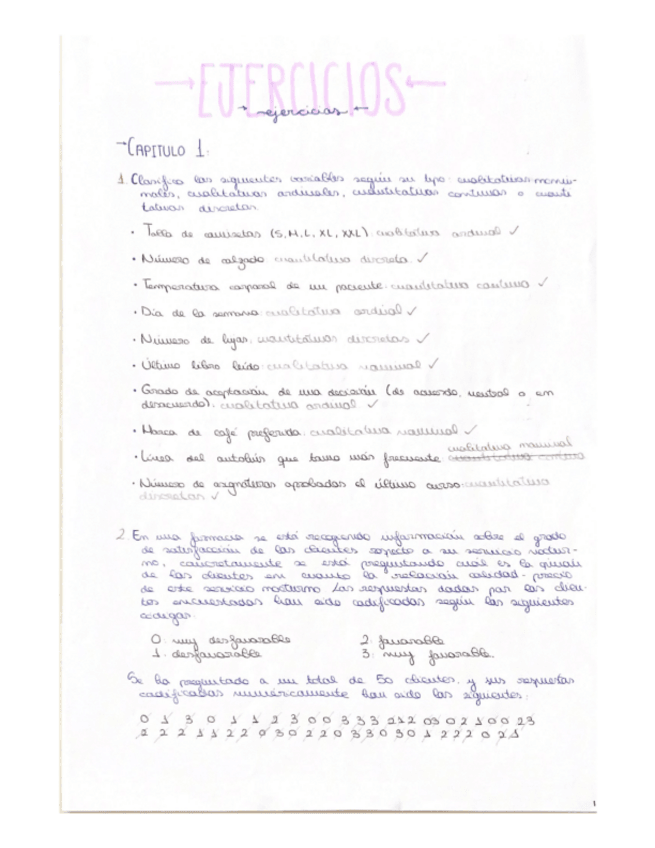 →EJERCICIOS←
→ ejercicios ←
→CAPITULO 1:
1. Clasifica las siguientes variables según su tipo: cualitativas nomi-
nales, cualitativas ordinales, cuantitativas continuas o cuanti
tativas discretas.
· Talla de camisetas (S, M, L, XL, XXL): cualitativa ordinal ✓
· Número de calzado: cuantitativa discreta ✓
· Temperatura corporal de un paciente: cuantitativa continua ✓
· Día de la semana: cualitativa ordinal ✓
· Número de hijos: cuantitativas discretas ✓
· Último libro leído: cualitativa nominal ✓
· Grado de aceptación de una decisión (de acuerdo, neutral o en
desacuerdo): cualitativa ordinal ✓
· Marca de café preferida: cualitativa nominal ✓
cualitativa nominal
· Línea del autobús que tomo más frecuente: cuantitativa continua
· Número de asignaturas aprobadas el último curso: cuantitativa
discretas ✓
2. En una farmacia se está recogiendo información sobre el grado
de satisfacción de los clientes respecto a su servicio noctur-
no, concretamente se está preguntando cuál es la opinión
de los clientes en cuanto la relación calidad-precio
de este servicio nocturno. Las respuestas dadas por los clien-
tes encuestados han sido codificadas según los siguientes
códigos:
0: muy desfavorable 2: favorable
1: desfavorable 3: muy favorable.
Se ha preguntado a un total de 50 clientes, y sus respuestas
codificadas numéricamente han sido las siguientes:
0 1 3 0 1 1 2 3 0 0 3 3 3 2 1 2 0 3 0 2 1 0 0 2 3
2 2 2 1 1 2 2 0 3 0 2 2 0 3 3 0 3 0 1 2 2 2 0 2 1
1